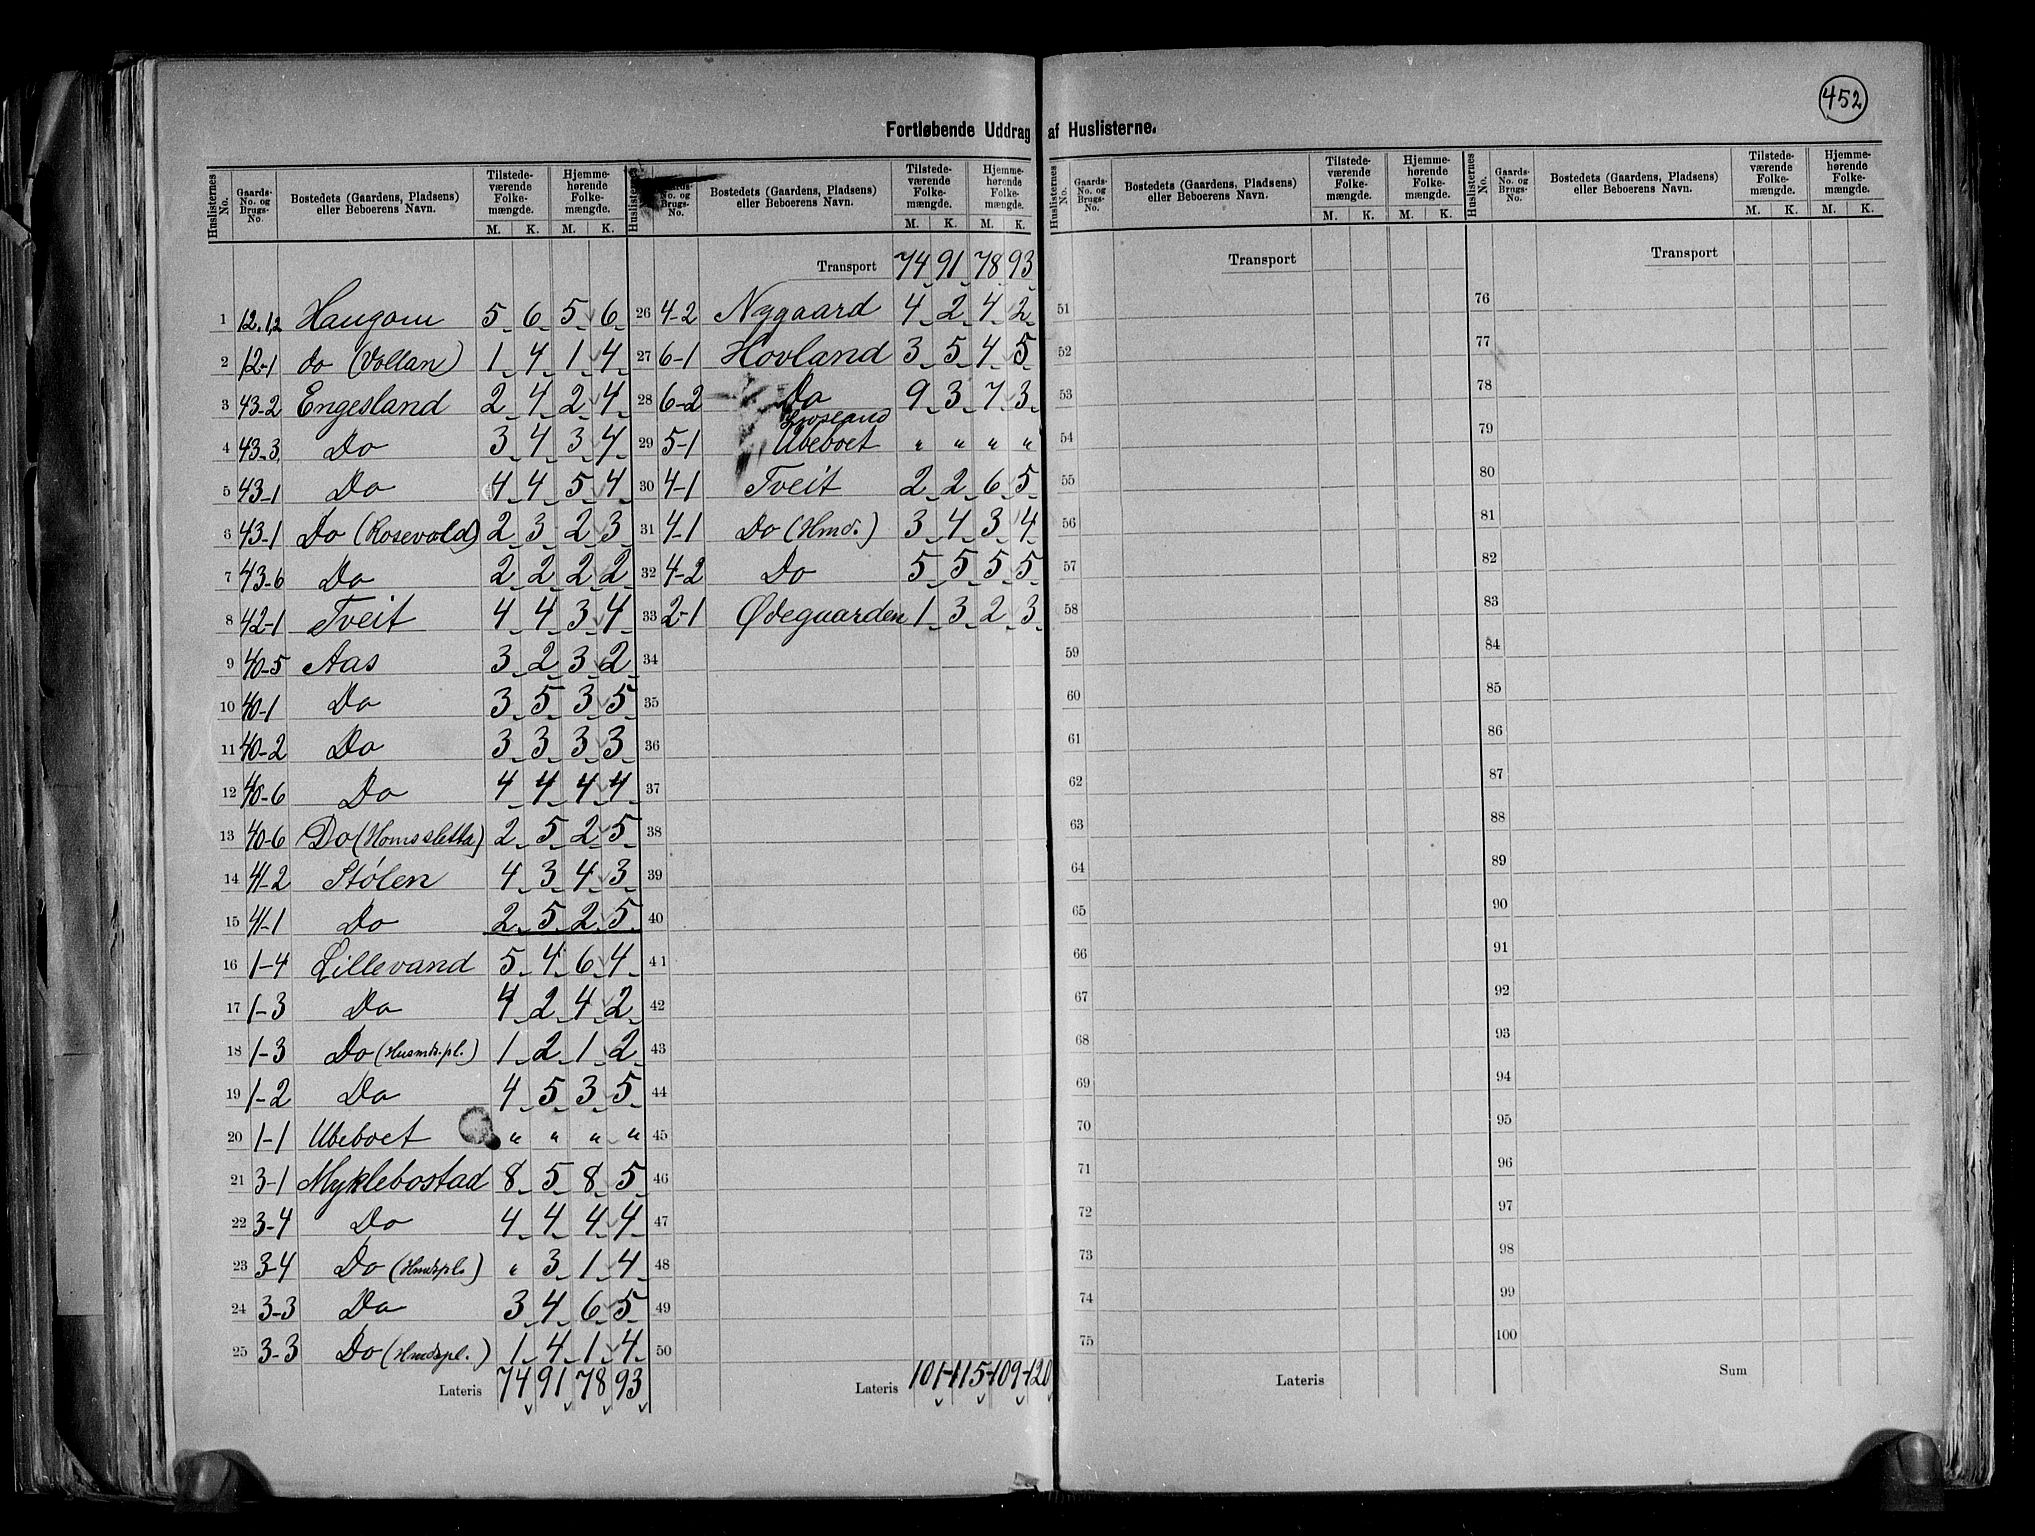 452
Fortløbende Uddrag af Huslisterne.
Huslisternes No. Gaards-No. og Brugs-No. Bostedets (Gaardens, Pladsen) eller Beboerens Navn. Tilstedeværende Folkemængde. M. K. Hjemmehørende Folkemængde. M. K.
1 12.1,2 Haugom 5 6 5 6
2 12-1 do (Vollan) 1 4 1 4
3 43-2 Engesland 2 4 2 4
4 43-3 Do 3 4 3 4
5 43-1 Do 4 4 5 4
6 43-1 Do (Rosevold) 2 3 2 3
7 43-6 Do 2 2 2 2
8 42-1 Tveit 4 4 3 4
9 40-5 Aas 3 2 3 2
10 40-1 Do 3 5 3 5
11 40-2 Do 3 3 3 3
12 40-6 Do 4 4 4 4
13 40-6 Do (Homssletta) 2 5 2 5
14 41-2 Stølen 4 3 4 3
15 41-1 Do 2 5 2 5
16 1-4 Lillevand 5 4 6 4
17 1-3 Do 4 2 4 2
18 1-3 Do (Husmds.pl.) 1 2 1 2
19 1-2 Do 4 5 3 5
20 1-1 Ubeboet " " " "
21 3-1 Myklebostad 8 5 8 5
22 3-4 Do 4 4 4 4
23 3-4 Do (Hmdspl.) " 3 1 4
24 3-3 Do 3 4 6 5
25 3-3 Do (Hmdspl.) 1 4 1 4
Lateris 74 91 78 93
Huslisternes Gaards-No. og Brugs-No. Bostedets (Gaardens, Pladsen) eller Beboerens Navn. Tilstedeværende Folkemængde. M. K. Hjemmehørende Folkemængde. M. K.
Transport 74 91 78 93
26 4-2 Nygaard 4 2 4 2
27 6-1 Hovland 3 5 4 5
28 6-2 Do 9 3 7 3
29 5-1 Ubeboet " " " "
30 4-1 Tveit 2 2 6 5
31 4-1 Do (Hmd.) 3 4 3 4
32 4-2 Do 5 5 5 5
33 2-1 Ødegaarden 1 3 2 3
34
35
36
37
38
39
40
41
42
43
44
45
46
47
48
49
50
Lateris 101-115-109-120
Huslisternes No. Gaards-No. og Brugs-No. Bostedets (Gaardens, Pladsen) eller Beboerens Navn. Tilstedeværende Folkemængde. M. K. Hjemmehørende Folkemængde. M. K.
Transport
51
52
53
54
55
56
57
58
59
60
61
62
63
64
65
66
67
68
69
70
71
72
73
74
75
Lateris
Huslisternes No. Gaards-No. og Brugs-No. Bostedets (Gaardens, Pladsen) eller Beboerens Navn. Tilstedeværende Folkemængde. M. K. Hjemmehørende Folkemængde. M. K.
Transport
76
77
78
79
80
81
82
83
84
85
86
87
88
89
90
91
92
93
94
95
96
97
98
99
100
Sum